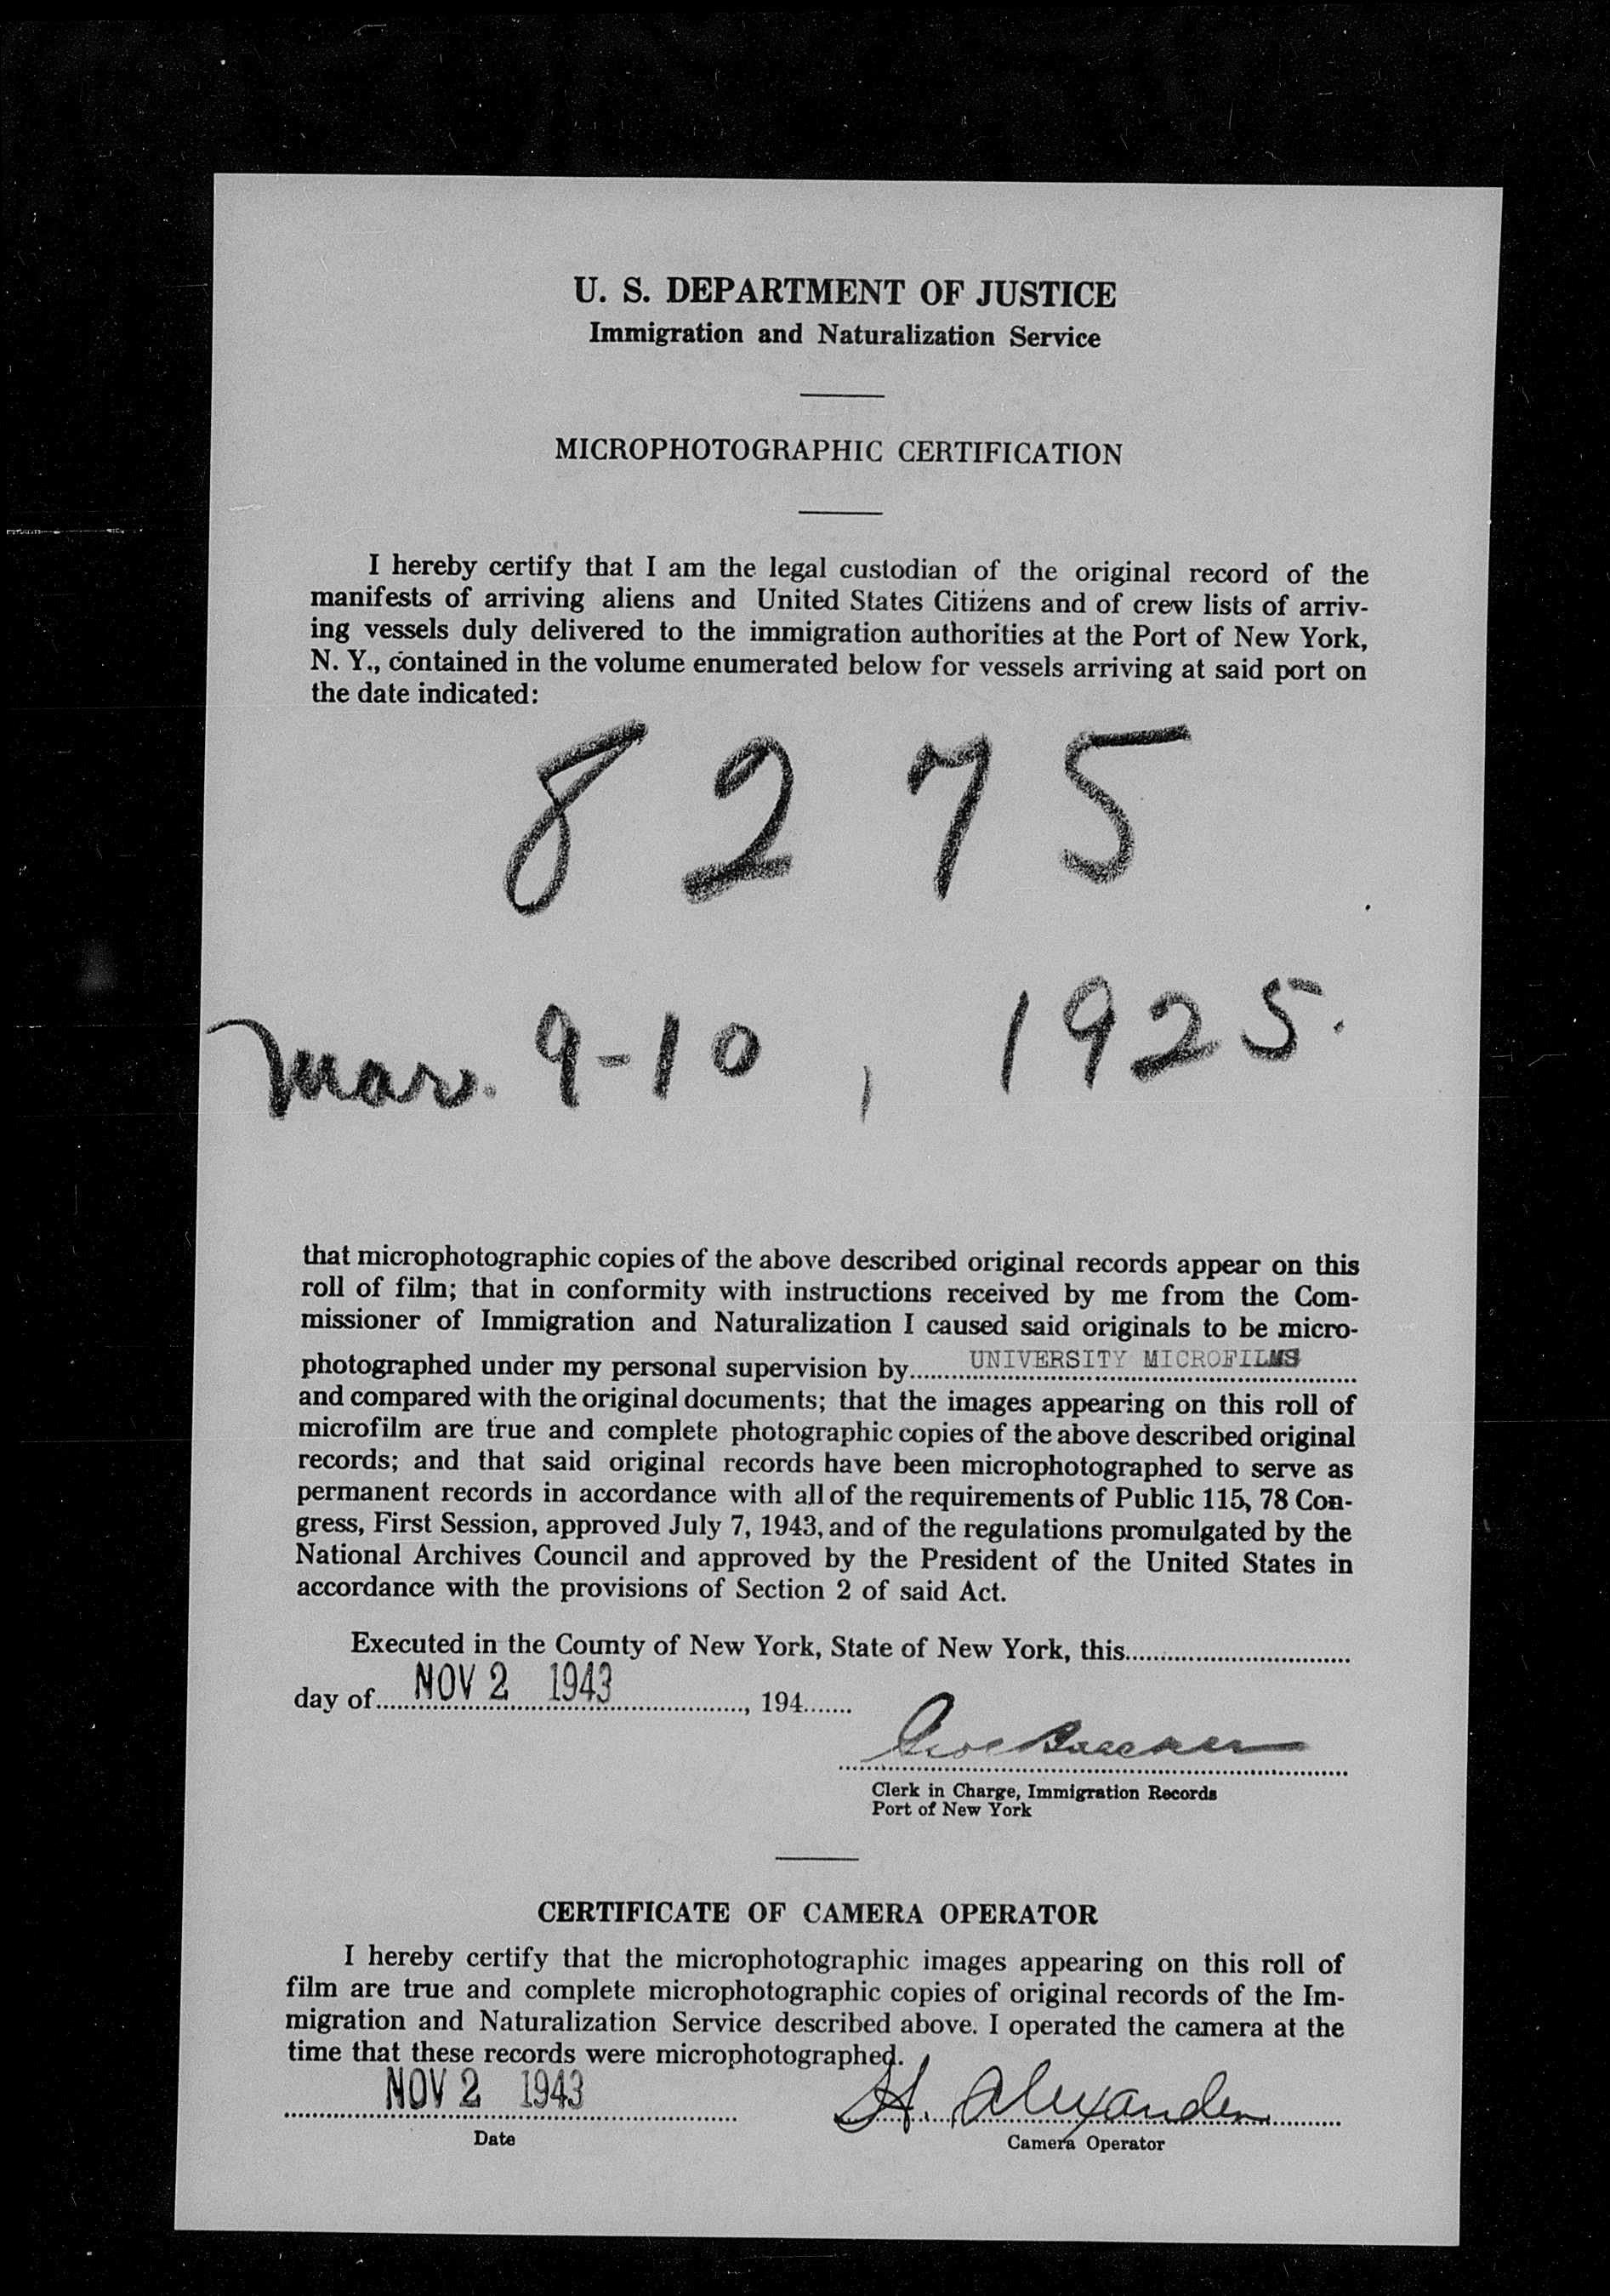 U. S. DEPARTMENT OF JUSTICE
Immigration and Naturalization Service
MICROPHOTOGRAPHIC CERTIFICATION
I hereby certify that I am the legal custodian of the original record of the
manifests of arriving aliens and United States Citizens and of crew lists of arriv-
ing vessels duly delivered to the immigration authorities at the Port of New York,
N. Y., contained in the volume enumerated below for vessels arriving at said port on
the date indicated:
8275
Mar. 9-10, 1925.
that microphotographic copies of the above described original records appear on this
roll of film; that in conformity with instructions received by me from the Com-
missioner of Immigration and Naturalization I caused said originals to be micro-
photographed under my personal supervision by UNIVERSITY MICROFILMS
and compared with the original documents; that the images appearing on this roll of
microfilm are true and complete photographic copies of the above described original
records; and that said original records have been microphotographed to serve as
permanent records in accordance with all of the requirements of Public 115, 78 Con-
gress, First Session, approved July 7, 1943, and of the regulations promulgated by the
National Archives Council and approved by the President of the United States in
accordance with the provisions of Section 2 of said Act.
Executed in the County of New York, State of New York, this
day of NOV 2 1943, 194
Clerk in Charge, Immigration Records
Port of New York
CERTIFICATE OF CAMERA OPERATOR
I hereby certify that the microphotographic images appearing on this roll of
film are true and complete microphotographic copies of original records of the Im-
migration and Naturalization Service described above. I operated the camera at the
time that these records were microphotographed.
NOV 2 1943 H. Alexander
Date Camera Operator